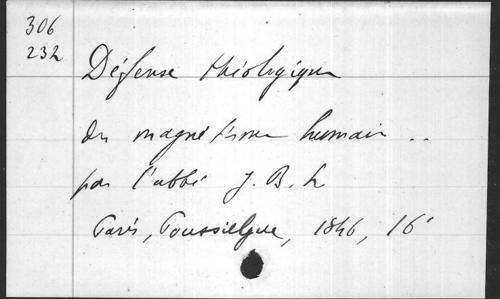 306
232
Défense théologique
du magnétisme humain ..
par l'abbé J. B. L
Paris, Poussielgue, 1846, 16°